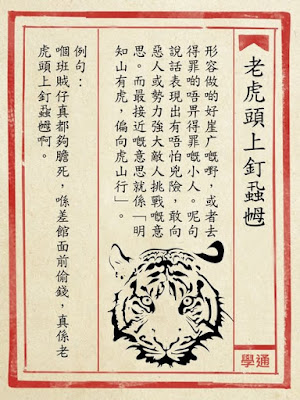 老虎頭上釘蝨乸
形容做啲好崖广嘅嘢，或者去
得罪啲唔畀得罪嘅小人。呢句
說話表現出有唔怕兇險，敢向
惡人或勢力強大敵人挑戰嘅意
思。而最接近嘅意思就係「明
知山有虎，偏向虎山行」。
例句：
嗰班賊仔真都夠膽死，喺差館面前偷錢，真係老
虎頭上釘蝨乸啊。
學通